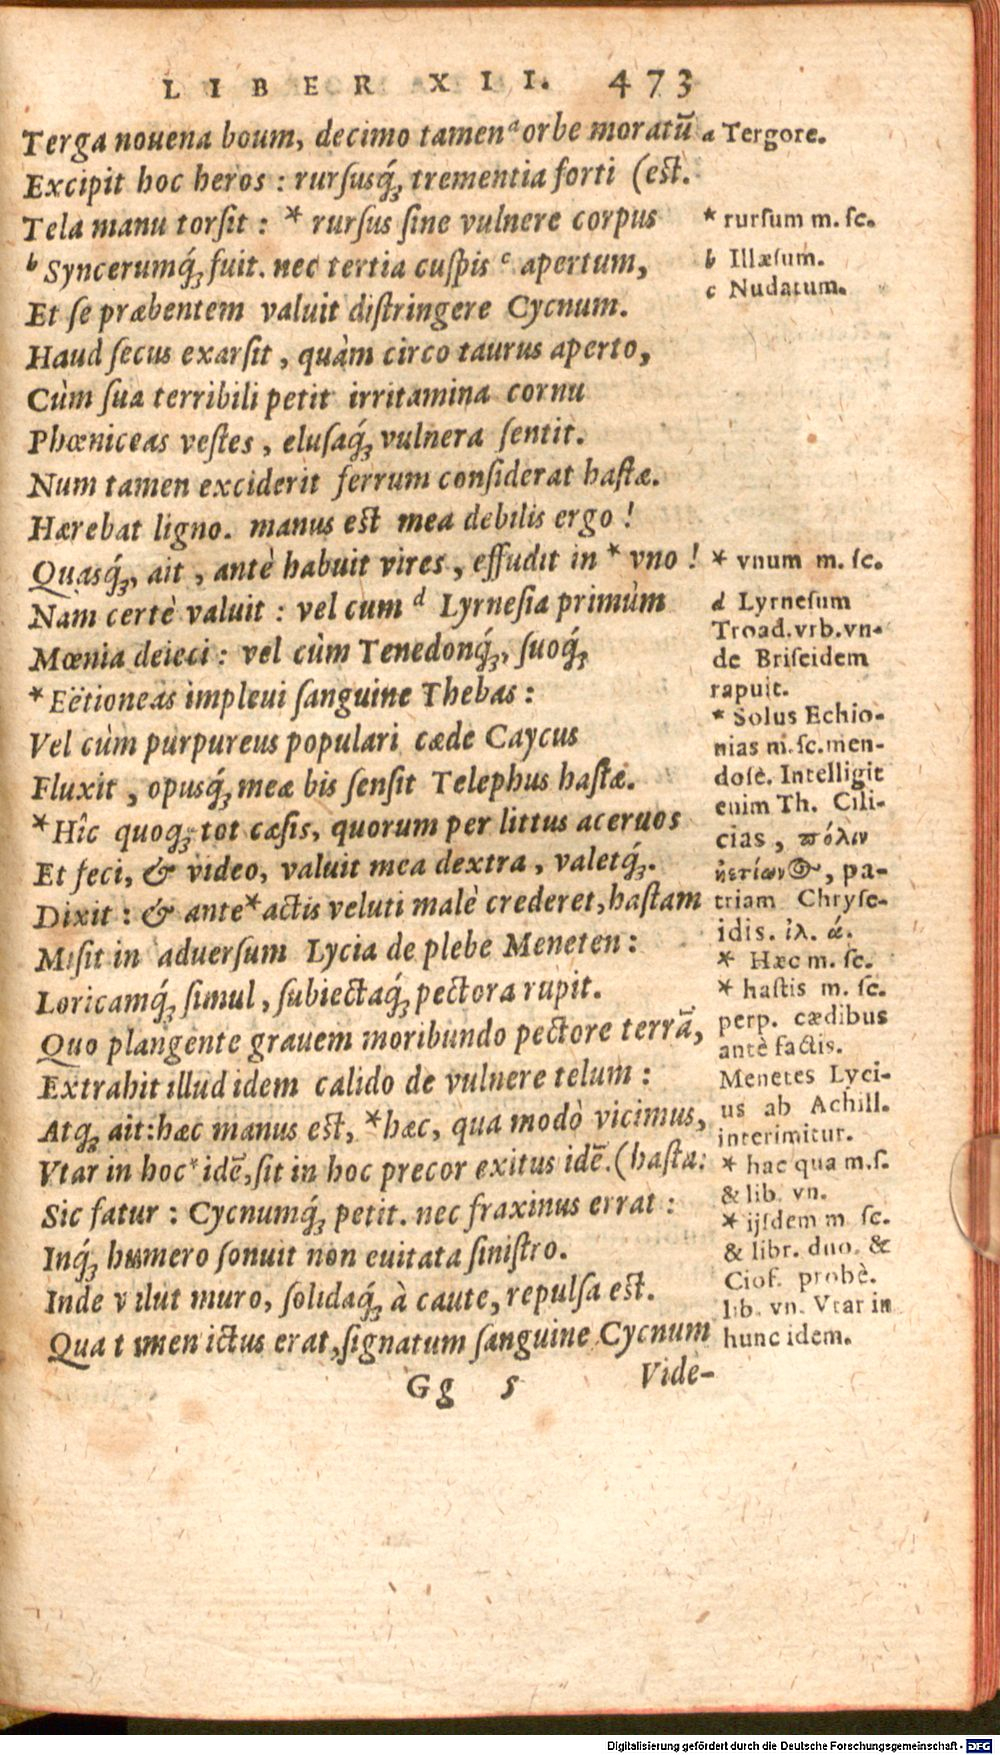 LIBER XII. 473
Terga nouena boum, decimo tamen ᵃ orbe moratũ
Excipit hoc heros : rursusq́₃ trementia forti (est.
Tela manu torsit : * rursus sine vulnere corpus
ᵇ Syncerumq́₃ fuit. nec tertia cuspis ᶜ apertum,
Et se præbentem valuit distringere Cycnum.
Haud secus exarsit, quàm circo taurus aperto,
Cùm sua terribili petit irritamina cornu
Phœniceas vestes, elusaq́₃ vulnera sentit.
Num tamen exciderit ferrum considerat hastæ.
Hærebat ligno. manus est mea debilis ergo !
Quasq́₃, ait, antè habuit vires, effudit in * vno !
Nam certè valuit : vel cum ᵈ Lyrnesia primùm
Mœnia deieci : vel cùm Tenedonq́₃, suoq́₃
* Eëtioneas impleui sanguine Thebas :
Vel cùm purpureus populari cæde Caycus
Fluxit, opusq́₃ meæ bis sensit Telephus hastæ.
* Hîc quoq₃ tot cæsis, quorum per littus aceruos
Et feci, & video, valuit mea dextra, valetq́₃.
Dixit : & ante * actis veluti malè crederet, hastam
Misit in aduersum Lycia de plebe Meneten :
Loricamq́₃ simul, subiectaq́₃ pectora rupit.
Quo plangente grauem moribundo pectore terrã,
Extrahit illud idem calido de vulnere telum :
Atq₃ ait: hæc manus est, * hæc, qua modò vicimus,
Vtar in hoc * idẽ, sit in hoc precor exitus idẽ. (hasta:
Sic fatur : Cycnumq́₃ petit. nec fraxinus errat :
Inq́₃ humero sonuit non euitata sinistro.
Inde v lut muro, solidaq́₃ à caute, repulsa est.
Qua t men ictus erat, signatum sanguine Cycnum
Gg 5 Vide-
a Tergore.
* rursum m. sc.
b Illæsum.
c Nudatum.
* vnum m. sc.
d Lyrnesum
Troad. vrb. vn-
de Briseidem
rapuit.
* Solus Echio-
nias m. sc. men-
dosè. Intelligit
enim Th. Cili-
cias, πόλιν
ἠετίωνος, pa-
triam Chryse-
idis. ἰλ. ά.
* Hæc m. sc.
* hastis m. sc.
perp. cædibus
antè factis.
Menetes Lyci-
us ab Achill.
interimitur.
* hac qua m. s.
& lib. vn.
* ijsdem m sc.
& libr. duo. &
Ciof. probè.
lib. vn. Vtar in
hunc idem.
Digitalisierung gefördert durch die Deutsche Forschungsgemeinschaft - DFG